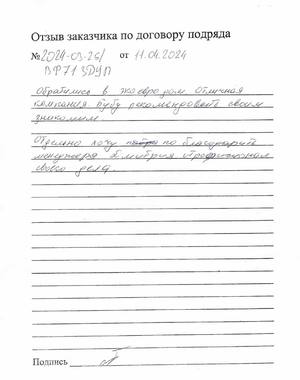 Отзыв заказчика по договору подряда
№2024-03-26/ от 11.04.2024
ВР713ДУП
Обратились в экоевродом. Отличная
компания буду рекомендовать своим
знакомым.
Отдельно хочу по благодарить
менеджера Дмитрия профессионал
своего дела.
Подпись